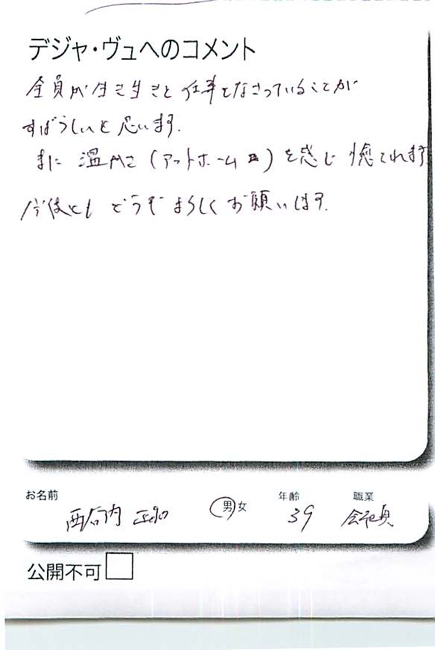 デジャ・ヴュへのコメント
全員が生き生きと仕事をなさっていることが
すばらしいと思います。
また 温かさ(アットホーム)を感じ 癒されます
今後とも どうぞよろしくお願いします。
お名前 男 女 年齢 職業
西 内 正和 39 会社員
公開不可